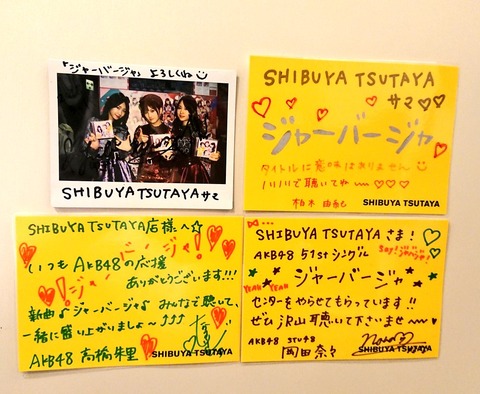 「ジャーバージャ」よろしくね
SHIBUYA TSUTAYA サマ
SHIBUYA TSUTAYA
サマ♡♡
ジャーバージャ
タイトルに意味はありません
ノリノリで聴いてね〜♡♡♡
柏木由紀
SHIBUYA TSUTAYA
SHIBUYA TSUTAYA店様へ☆
いつもAKB48の応援
ありがとうございます!!!
新曲♪ジャーバージャ♪みんなで聴いて、
一緒に盛り上がりましょ〜♪♪♪
AKB48 高橋朱里
SHIBUYA TSUTAYA
SHIBUYA TSUTAYA さま!
AKB48 51stシングル
Say!
★ジャーバージャ★
YEAH YEAH
センターをやらせてもらっています!!
ぜひ沢山聴いて下さいませ〜♥
AKB48 STU48
岡田奈々
SHIBUYA TSUTAYA